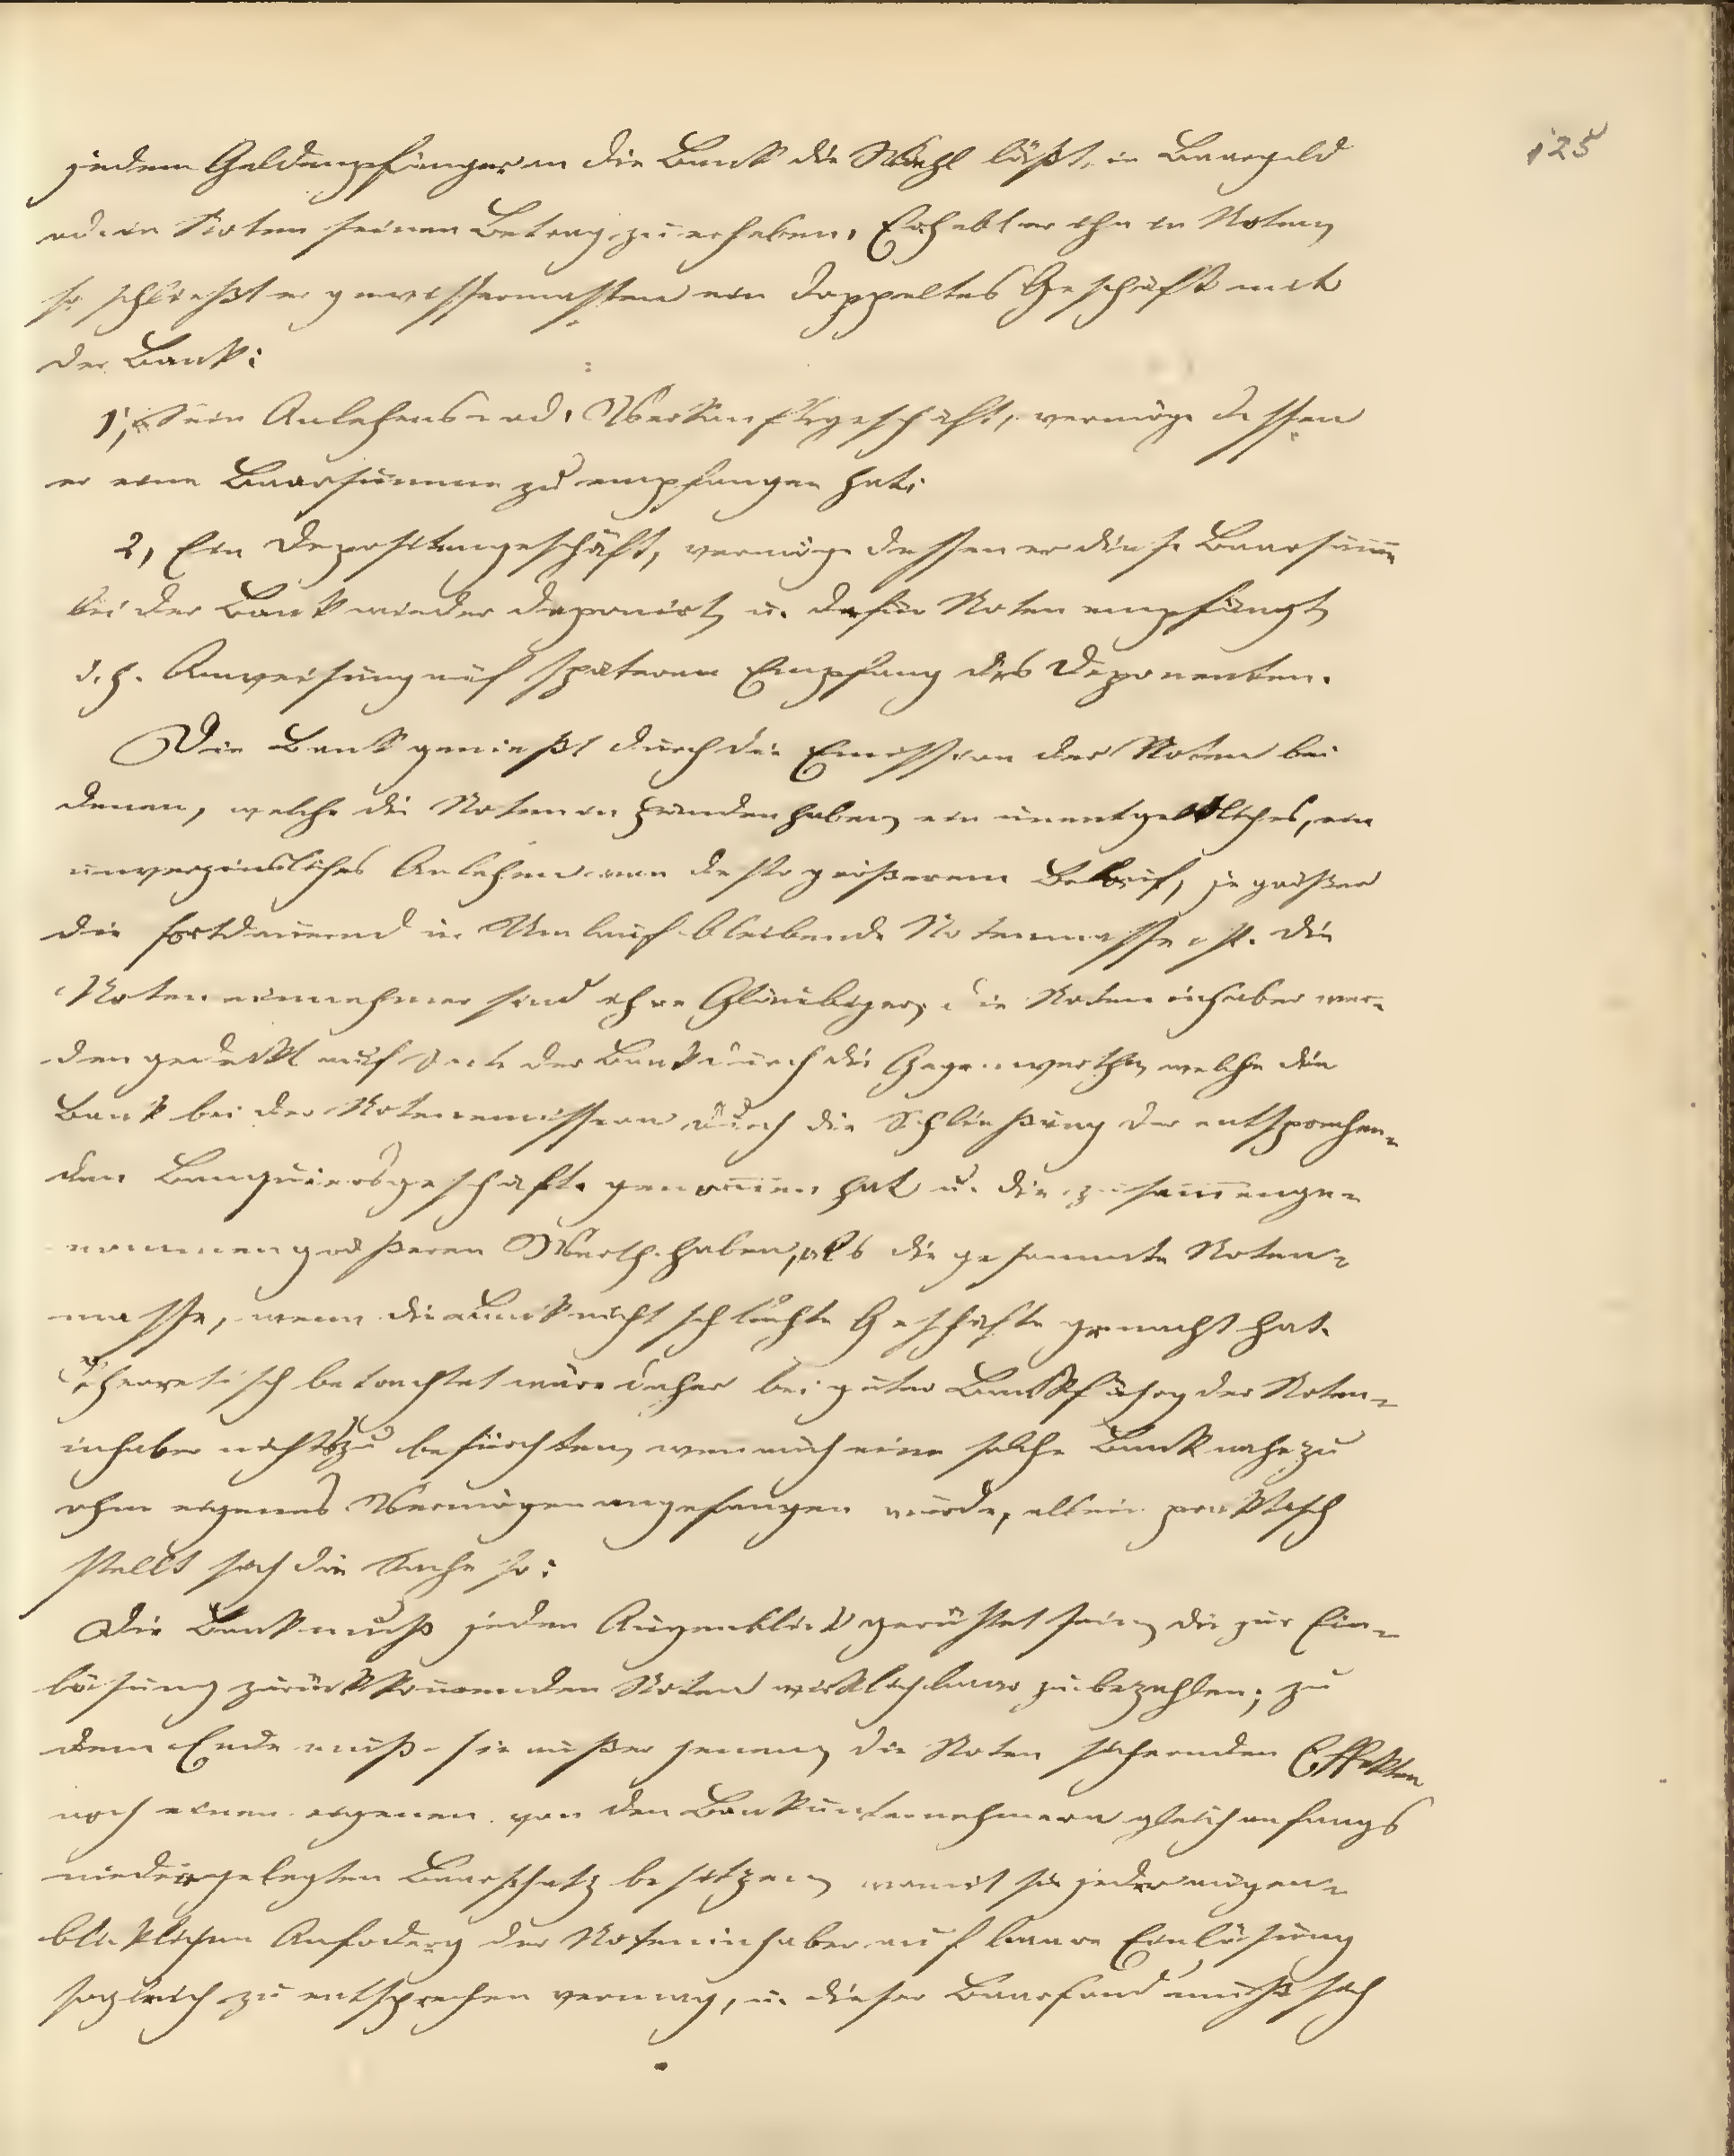 125
jedem Geldempfänger an die Bank die Wahl läßt, in Baargeld
od. in Noten seinen Betrag zu erheben. Erhebt er ihn in Noten,
so schließt er gewissermassen ein doppeltes Geschäft mit
der Bank:
1, Ein Anlehens- od. Verkaufsgeschäft, vermöge dessen
er eine Baarsumme zu empfangen hat;
2, Ein Depositengeschäft, vermöge dessen er diese Baarsum̅e
bei der Bank wieder deponirt, u. dafür Noten empfängt,
d. h. Anweisung auf späteren Empfang des Deponenten.
Die Bank genießt durch die Emission der Noten bei
denen, welche die Noten in Händen haben, ein unentgeltliches, ein
unverzinsliches Anlehen von desto größerem Belauf, je größer
die fortdauernd in Umlauf bleibende Notenmasse ist. Die
Notennehmer sind ihre Gläubiger, die Noteninhaber wer-
den gedekt auf Seite der Bank durch die Gegenwerthe, welche die
Bank bei der Notenemission durch die Schließung der entsprechen-
den Banquiersgeschäfte genom̅en hat u. die zusam̅enge-
nommen größeren Werth haben, als die gesammte Noten-
masse, wenn die Bank nicht schlechte Geschäfte gemacht hat.
Theoretisch betrachtet wäre daher bei guter Bankführg der Noten-
inhaber nichts zu befürchten, wenn auch eine solche Bank nahezu
ohne eigenes Vermögen angefangen würde, allein praktisch
stellt sich die Sache so:
Die Bank muß jeden Augenblick gerüstet sein, die zur Ein-
lösung zurückkommenden Noten wirklich baar zu bezahlen; zu
dem Ende muß sie außer jenen, die Noten sichernden Effekten
noch einen eigenen von den Bankunternehmern gleich anfangs
niedergelegten Baarschatz besitzen, womit sie jeder augen-
bliklichen Anfoderg der Noteninhaber auf baare Einlösung
sogleich zu entsprechen vermag, u. dieser Baarfond muß sich